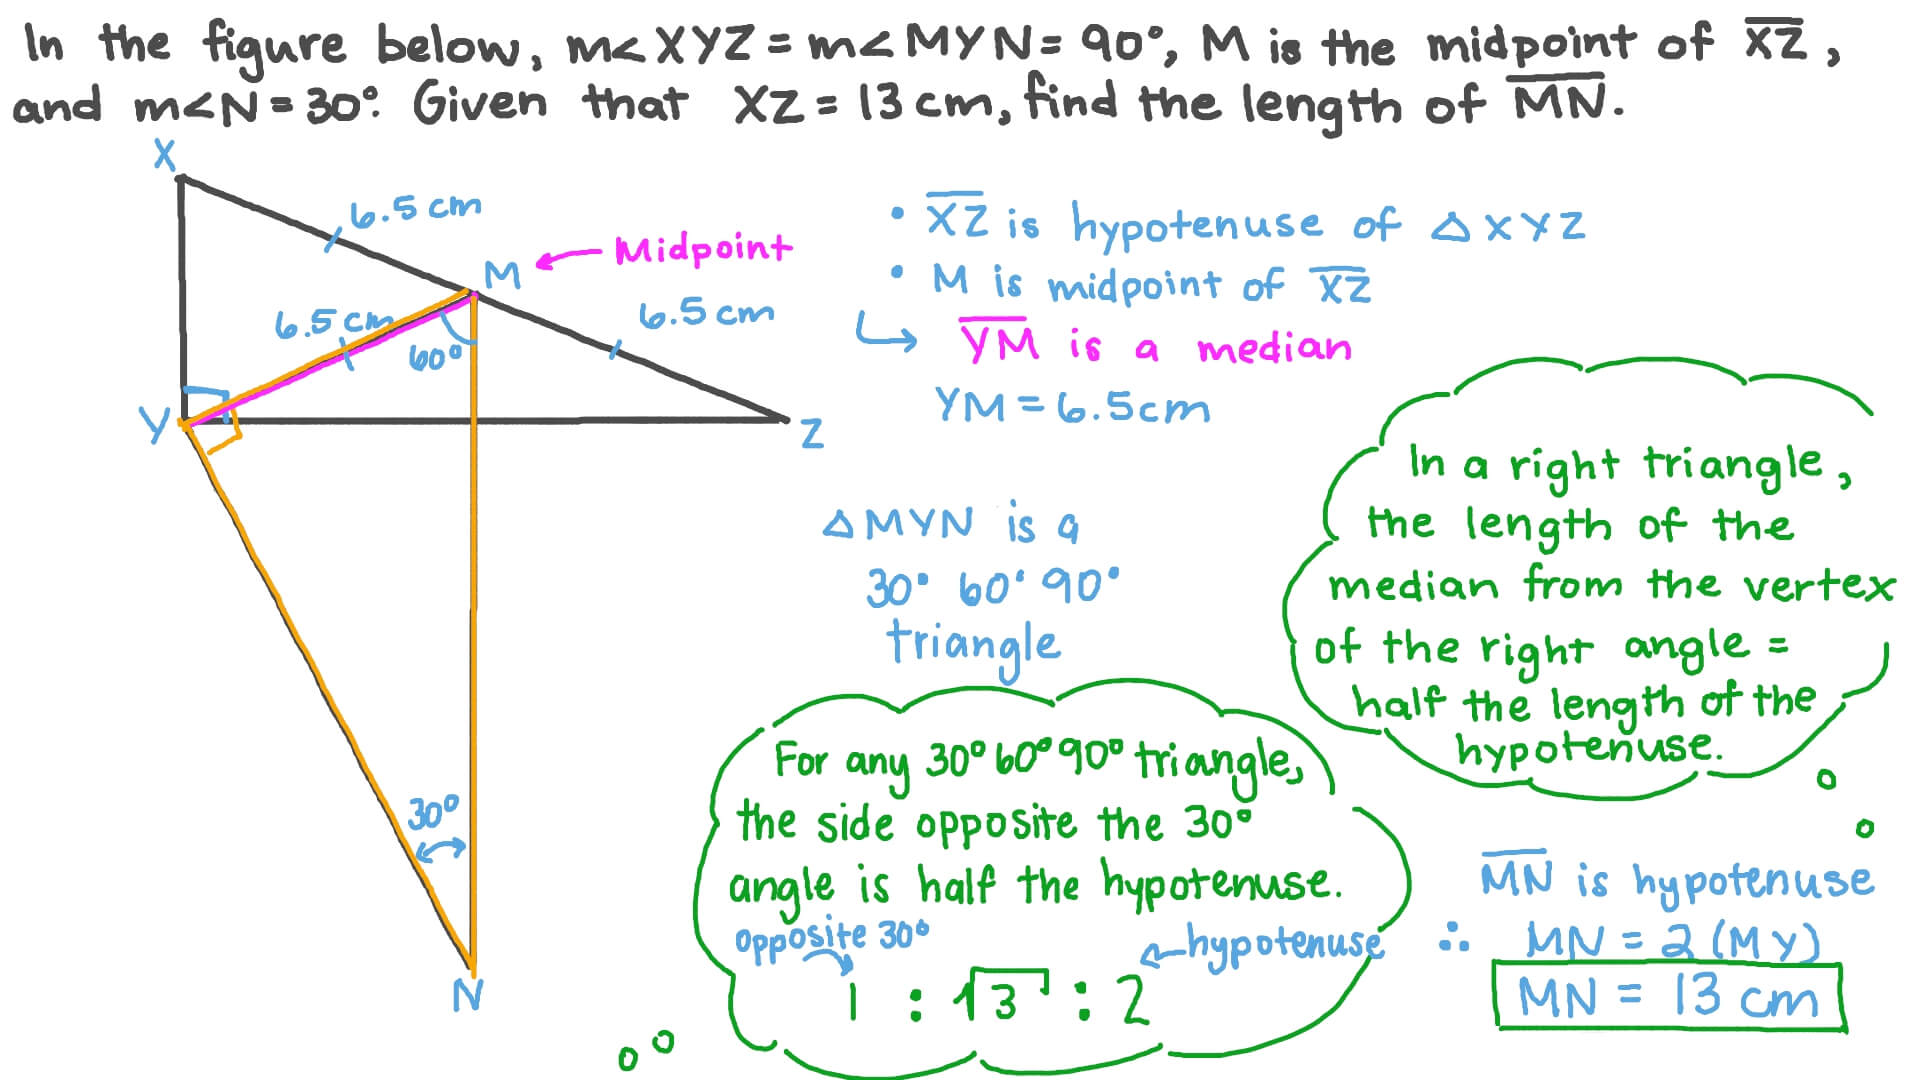 In the figure below, m<XYZ = m<MYN = 90°, M is the midpoint of X̅Z̅,
and m<N = 30°. Given that XZ = 13 cm, find the length of M̅N̅.
X
6.5 cm
M
Midpoint
6.5 cm
6.5 cm
60°
Y
Z
30°
N
• X̅Z̅ is hypotenuse of △XYZ
• M is midpoint of X̅Z̅
↳ Y̅M̅ is a median
YM = 6.5cm
△MYN is a
30° 60° 90°
triangle
In a right triangle,
the length of the
median from the vertex
of the right angle =
half the length of the
hypotenuse.
For any 30° 60° 90° triangle,
the side opposite the 30°
angle is half the hypotenuse.
opposite 30°
hypotenuse
1 : √3 : 2
M̅N̅ is hypotenuse
∴ MN = 2 (MY)
MN = 13 cm